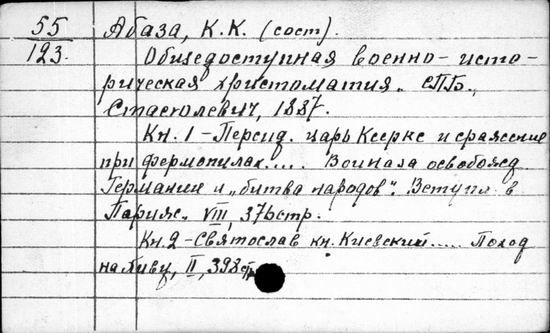 55
123.
Абаза, К.К. (сост).
Общедоступная военно-исто-
рическая христоматия. СПБ.,
Стасюлевич, 1887.
Кн. 1 - Персид. царь Ксеркс и сражение
при фермопилах..... Война за освобожд
Германии и "битва народов". Вступл. в
Париж. VIII, 376стр.
Кн.2 - Святослав кн. Киевский..... Поход
на Хиву, II, 398стр